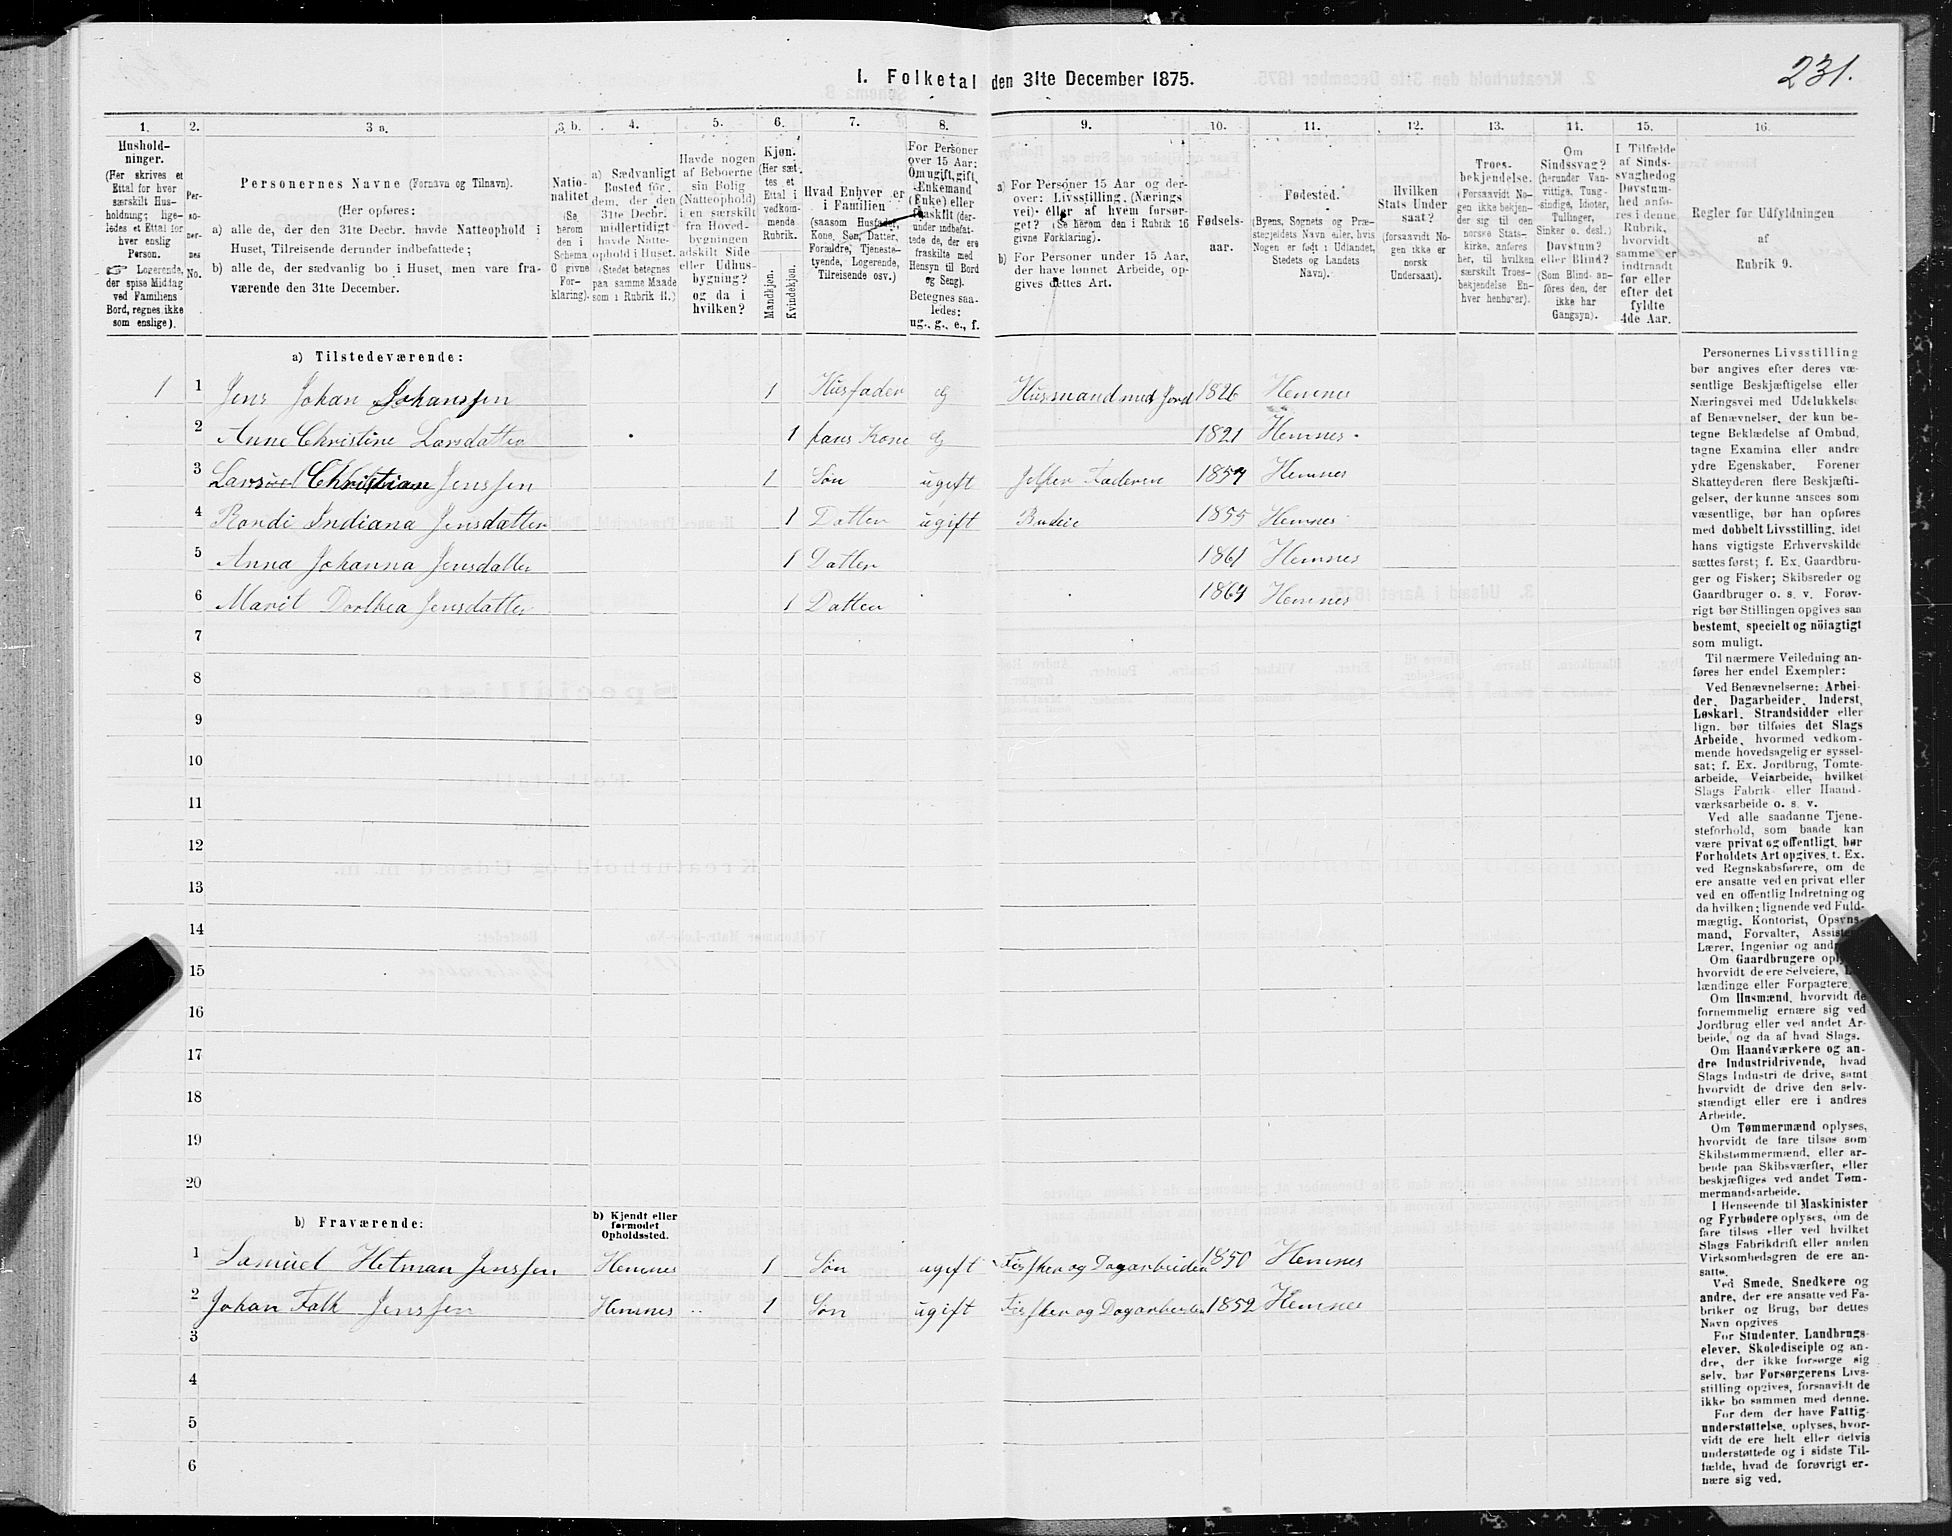 231.
1. Folketal den 31te December 1875.
1. 2. 3 a. 3 b. 4. 5. 6. 7. 8. 9. 10. 11. 12. 13. 14. 15. 16.
Hushold-
ninger.
(Her skrives et
Ettal for hver
særskilt Hus-
holdning; lige-
ledes et Ettal for
hver enslig
Person.
☞ Logerende,
der spise Middag
ved Familiens
Bord, regnes ikke
som enslige).
Per-
so-
ner-
nes
No.
Personernes Navne (Fornavn og Tilnavn).
(Her opføres:
a) alle de, der den 31te Decbr. havde Natteophold i
Huset, Tilreisende derunder indbefattede;
b) alle de, der sædvanlig bo i Huset, men vare fra-
værende den 31te December.
Natio-
nalitet
(Se
herom
den i
Schema
C givne
For-
klaring).
a) Sædvanligt
Bosted for
dem, der den
31te Decbr.
midlertidigt
havde Natte-
ophold i Huset.
(Stedet betegnes
paa samme Maade
som i Rubrik 11.)
Havde nogen
af Beboerne
sin Bolig
(Natteophold)
i en særskilt
fra Hoved-
bygningen
adskilt Side
eller Udhus-
bygning?
og da i
hvilken?
Kjøn.
(Her sæt-
tes et
Ettal i
vedkom-
mende
Rubrik.
Mandkjøn.
Kvindekjøn.
Hvad Enhver er
i Familien
(saasom Husfader,
Kone, Søn, Datter,
Forældre, Tjeneste-
tyende, Logerende,
Tilreisende osv.)
For Personer
over 15 Aar:
Om ugift, gift,
Enkemand
(Enke) eller
fraskilt (der-
under indbefat-
tede de, der ere
fraskilte med
Hensyn til Bord
og Seng).
Betegnes saa-
ledes:
ug., g., e., f.
a) For Personer 15 Aar og der-
over: Livsstilling. (Nærings
vei) eller af hvem forsør-
get? (Se herom den i Rubrik 16
givne Forklaring).
b) For Personer under 15 Aar,
der have lønnet Arbeide, op-
gives dettes Art.
Fødsels-
aar.
Fødested.
(Byens, Sognets og Præ-
stegjeldets Navn eller, hvis
Nogen er født i Udlandet,
Stedets og Landets
Navn).
Hvilken
Stats Under
saat?
(forsaavidt No-
gen ikke er
norsk
Undersaat).
Troes-
bekjendelse.
(Forsaavidt No-
gen ikke bekjen-
der sig til den
norske Stats-
kirke, anføres
her, til hvilken
særskilt Troes-
bekjendelse En-
hver henhører).
Om
Sindssvag?
(herunder Van-
vittige, Tung-
sindige, Idioter,
Tullinger,
Sinker o. desl.)
Døvstum?
eller Blind?
(Som Blind an-
føres den, der
ikke har
Gangsyn).
I Tilfælde
af Sinds-
svaghed og
Døvstum-
hed anfø-
res i denne
Rubrik,
hvorvidt
samme er
indtraadt
før eller
efter det
fyldte
4de Aar.
Regler for Udfyldningen
af
Rubrik 9.
a) Tilstedeværende:
1 1 Jens Johan Johanssen 1 Husfader g Husmand med Jord 1826 Hemnes
2 Anne Christine Larsdatter 1 hans Kone g 1821 Hemnes
3 Christian Jenssen 1 Søn ugift Hjelper Faderen 1857 Hemnes
4 Randi Indiana Jensdatter 1 Datter ugift Budeie 1855 Hemnes
5 Anna Johanna Jensdatter 1 Datter 1861 Hemnes
6 Marit Dorthea Jensdatter 1 Datter 1864 Hemnes
7
8
9
10
11
12
13
14
15
16
17
18
19
20
b) Fraværende:
b) Kjendt eller
formodet
Opholdssted.
1 Samüel Hetman Jenssen Hemnes 1 Søn ugift Fisker og Dagarbeider 1850 Hemnes
2 Johan Falk Jenssen Hemnes 1 Søn ugift Fisker og Dagarbeider 1852 Hemnes
3
4
5
6
Personernes Livsstilling
bør angives efter deres væ-
sentlige Beskjæftigelse eller
Næringsvei med Udelukkelse
af Benævnelser, der kun be-
tegne Beklædelse af Ombud,
tagne Examina eller andre
ydre Egenskaber. Forener
Skatteyderen flere Beskjæfti-
gelser, der kunne ansees som
væsentlige, bør han opføres
med dobbelt Livsstilling, idet
hans vigtigste Erhvervskilde
sættes først; f. Ex. Gaardbru-
ger og Fisker; Skibsreder og
Gaardbruger o. s. v. Forøv-
rigt bør Stillingen opgives saa
bestemt, specielt og nöiagtigt
som muligt.
Til nærmere Veiledning an-
føres her endel Exempler:
Ved Benævnelserne: Arbei-
der, Dagarbeider, Inderst,
Løskarl, Strandsidder eller
lign. bør tilføies det Slags
Arbeide, hvormed vedkom-
mende hovedsagelig er syssel-
sat; f. Ex. Jordbrug, Tomte-
arbeide, Veiarbeide, hvilket
Slags Fabrik- eller Haand-
værksarbeide o. s. v.
Ved alle saadanne Tjene-
steforhold, som baade kan
være privat og offentligt, bør
Forholdets Art opgives, t. Ex.
ved Regnskabsførere, om de
ere ansatte ved en privat eller
ved en offentlig Indretning og
da hvilken; lignende ved Fuld-
mægtig, Kontorist, Opsyns-
mand, Forvalter, Assistent,
Lærer, Ingeniør og andre.
Om Gaardbrugere oplyses,
hvorvidt de ere Selveiere, Lei-
lændinge eller Forpagtere.
Om Husmænd, hvorvidt de
fornemmelig ernære sig ved
Jordbrug eller ved andet Ar-
beide, og da af hvad Slags.
Om Haandværkere og an-
dre Industridrivende, hvad
Slags Industri de drive, samt
hvorvidt de drive den selv-
stændigt eller ere i andres
Arbeide.
Om Tømmermænd oplyses,
hvorvidt de fare tilsøs som
Skibstømmermænd, eller ar-
beide paa Skibsværfter, eller
beskjæftiges ved andet Tøm-
mermandsarbeide.
I Henseende til Maskinister
og Fyrbødere oplyses, om de
fare tilsøs eller ved hvilket
Slags Fabrikdrift eller anden
Virksomhedsgren de ere an-
satte.
Ved Smede, Snedkere og
andre, der ere ansatte ved Fa-
briker og Brug, bør dettes
Navn opgives
For Studenter, Landbrugs-
elever, Skoledisciple og an-
dre, der ikke forsørge sig
selv, bør Forsørgerens Livs-
stilling opgives, forsaavidt de
ikke bo sammen med denne.
For dem der have Fattig-
understøttelse, oplyses, hvor-
vidt de ere helt eller delvis
understøttede og i sidste Til-
fælde, hvad de forøvrigt er-
nære sig ved.